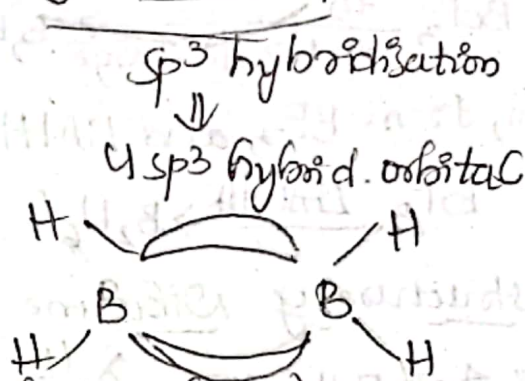 sp3 hybridisation
4 sp3 hybrid. orbital
H H
B B
H H